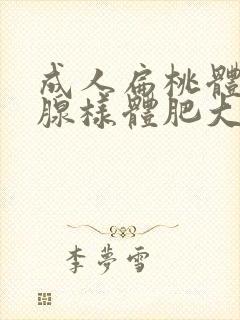 成人扁桃體
腺樣體肥大
李夢雪